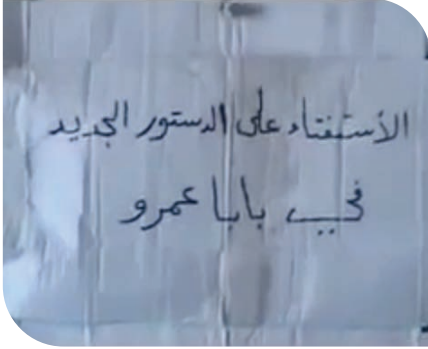 الأستفتاء على الدستور الجديد
في بابا عمرو